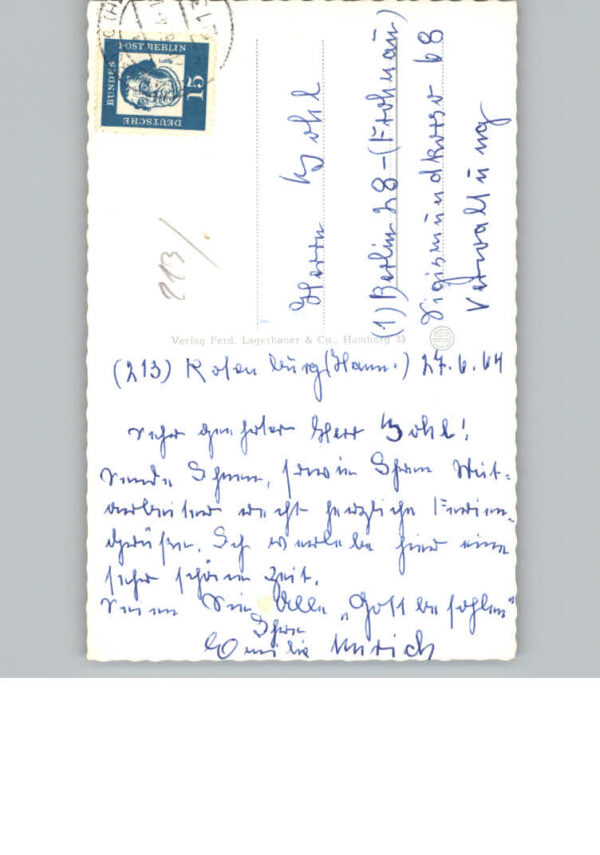 DEUTSCHE
BUNDES
POST BERLIN
15
213/.
Herrn Bohl
(1) Berlin 28-(Frohnau)
Sigismundkorso 68
Verwaltung
Verlag Ferd. Lagerbauer & Co., Hamburg 33
(213) Rotenburg (Hann.) 27.6.64
Sehr geehrter Herr Bohl!
Sende Ihnen, sowie Ihren Mit-
arbeitern recht herzliche Ferien-
grüße. Ich verlebe hier eine
sehr schöne Zeit.
Seien Sie Alle „Gott befohlen"
Ihre
Emilie